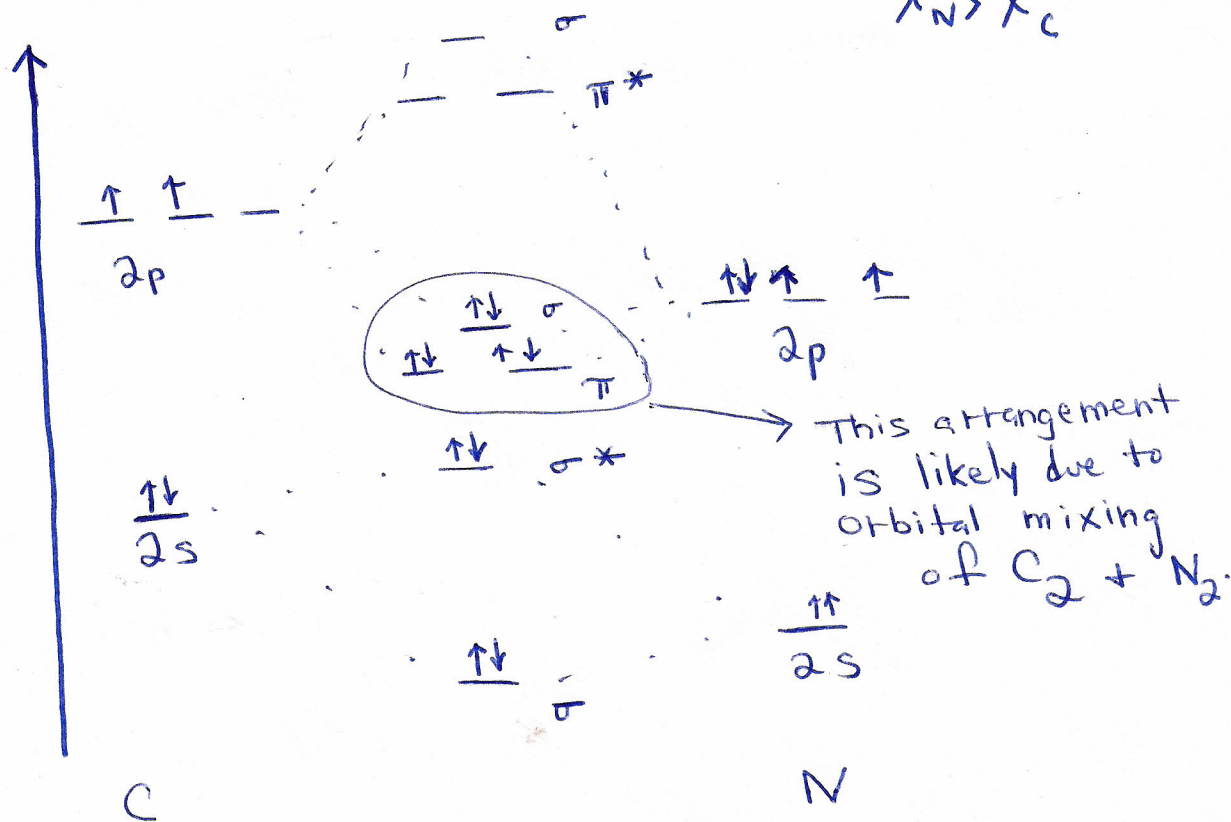 χN > χC
σ
π*
↑ ↑
2p
↑↓ σ
↑↓ ↑↓
π
↑↓ ↑ ↑
2p
↑↓ σ*
This arrangement
is likely due to
orbital mixing
of C2 + N2.
↑↓
2s
↑↑
2s
↑↓
σ
C
N